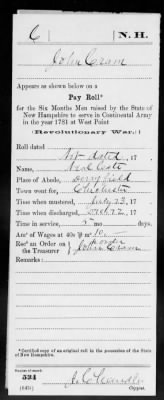 C N. H.
John Cram
Appears as shown below on a
Pay Roll*
for the Six Months Men raised by the State of
New Hampshire to serve in Continental Army
in the year 1781 at West Point
(Revolutionary War.)
Roll dated
Not dated, 17
Name, Neal Cate
Place of Abode, Deerfield
Town went for, Chichester
Time when mustered, July 23, 17
Time when discharged, 22, 17
Time in service, 5 mo days.
Am't of Wages at 40s ₱ m 10. —
Rec'd an Order on the Treasurer } John Cram
Remarks:
*Certified copy of an original roll in the possession of the State
of New Hampshire.
Number of record:
534
(645) Copyist.